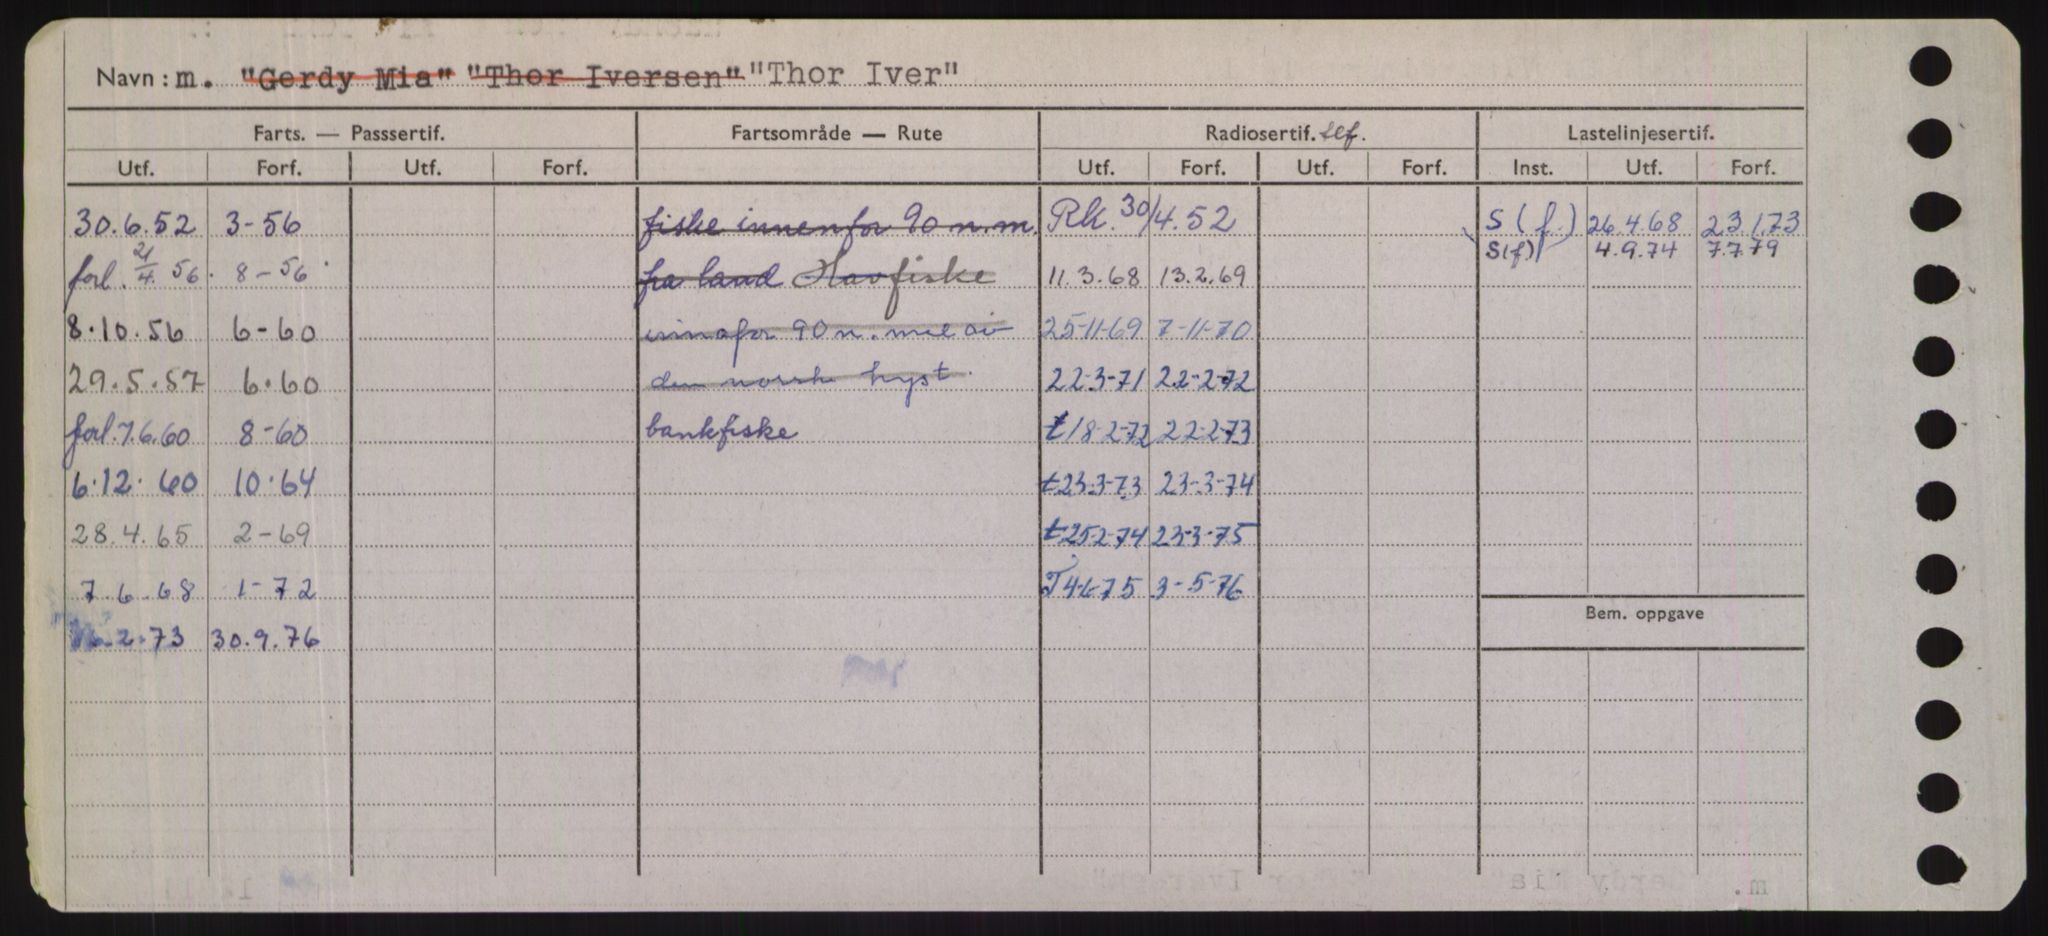 Navn: m. "Gerdy Mia" "Thor Iversen" "Thor Iver"
Farts. — Passsertif. Fartsområde — Rute Radiosertif. Lastelinjesertif.
Utf. Forf. Utf. Forf. Utf. Forf. Utf. Forf. Inst. Utf. Forf.
30.6.52 3-56 fiske innenfor 90 n.m. RK. 30/4.52 S (f.) 26.4.68 23.1.73
S(f) 4.9.74 7.7.79
forl. 21/4. 56. 8-56 fra land Havfiske 11.3.68 13.2.69
8.10.56 6-60 innafor 90 n. mil av 25-11-69 7-11-70
29.5.57 6.60 den norske kyst. 22-3-71 22-2-72
forl. 7.6.60 8-60 bankfiske t 18-2-72 22-2-73
6.12.60 10.64 t 23.3-73 23-3-74
28.4.65 2-69 t 25-2-74 23-3-75
7.6.68 1-72 T 4-6-75 3-5-76
Bem. oppgave
2.73 30.9.76